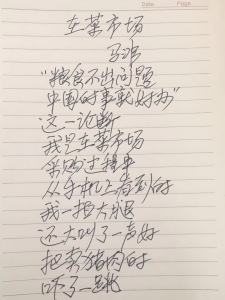 在菜市场
马鸿
“粮食不出问题
中国的事就好办”
这一论断
我是在菜市场
采购过程中
从手机上看到的
我一拍大腿
还大叫了一声好
把卖猪肉的
吓了一跳